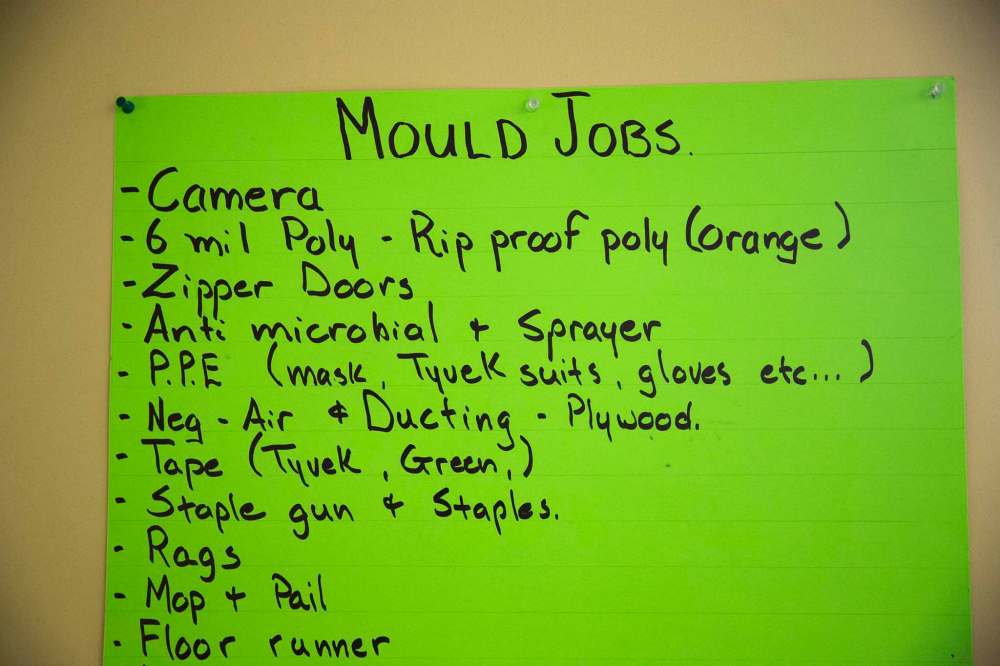 MOULD JOBS.
- Camera
- 6 mil Poly - Rip proof poly (orange)
- Zipper Doors
- Anti microbial + Sprayer
- P.P.E (mask, Tyvek suits, gloves etc... )
- Neg - Air & Ducting - Plywood.
- Tape (Tyvek, Green,)
- Staple gun & Staples.
- Rags
- Mop + Pail
- Floor runner